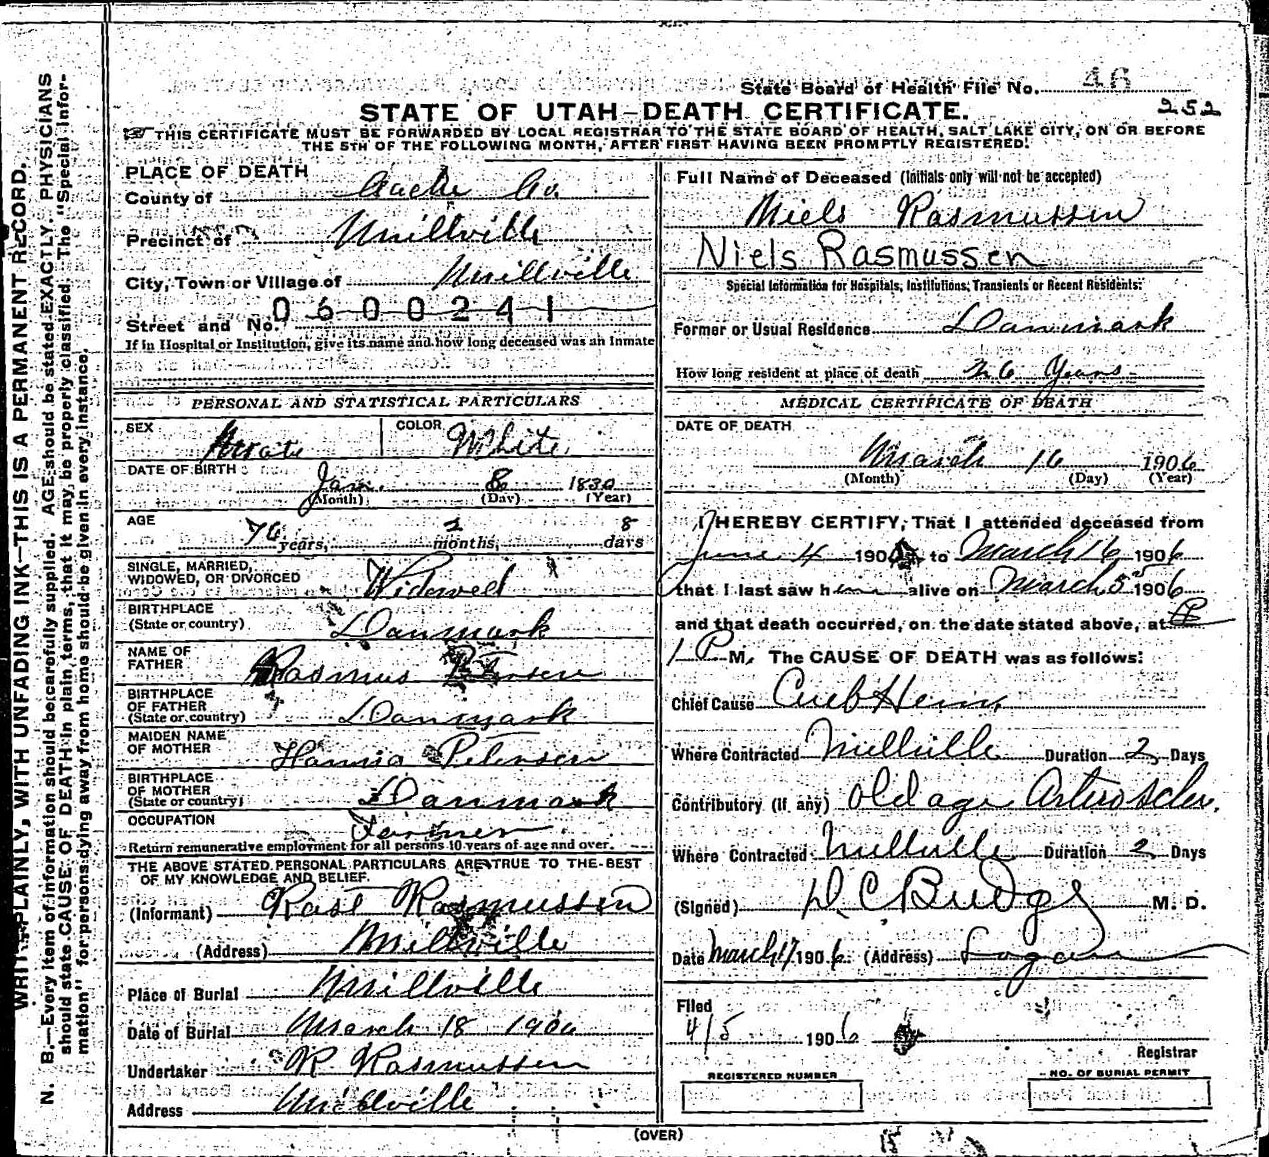 State Board of Health File No. 46
STATE OF UTAH—DEATH CERTIFICATE.
252
THIS CERTIFICATE MUST BE FORWARDED BY LOCAL REGISTRAR TO THE STATE BOARD OF HEALTH, SALT LAKE CITY, ON OR BEFORE
THE 5TH OF THE FOLLOWING MONTH, AFTER FIRST HAVING BEEN PROMPTLY REGISTERED.
WRITE PLAINLY, WITH UNFADING INK—THIS IS A PERMANENT RECORD.
N. B.—Every item of information should be carefully supplied. AGE should be stated EXACTLY. PHYSICIANS
should state CAUSE OF DEATH in plain terms, that it may be properly classified. The "Special Infor-
mation" for persons dying away from home should be given in every instance.
PLACE OF DEATH
County of Cache Co.
Precinct of Millville
City, Town or Village of Millville
0600241
Street and No.
If in Hospital or Institution, give its name and how long deceased was an Inmate
PERSONAL AND STATISTICAL PARTICULARS
SEX Male COLOR White
DATE OF BIRTH Jan. 8 1830
(Month) (Day) (Year)
AGE 76 years, 2 months, 8 days
SINGLE, MARRIED,
WIDOWED, OR DIVORCED Widowed
BIRTHPLACE
(State or country) Danmark
NAME OF
FATHER Rasmus
BIRTHPLACE
OF FATHER
(State or country) Danmark
MAIDEN NAME
OF MOTHER Hanna Petersen
BIRTHPLACE
OF MOTHER
(State or country) Danmark
OCCUPATION Farmer.
Return remunerative employment for all persons 10 years of age and over.
THE ABOVE STATED PERSONAL PARTICULARS ARE TRUE TO THE BEST
OF MY KNOWLEDGE AND BELIEF.
(Informant) Rast Rasmussen
(Address) Millville
Place of Burial Millville
Date of Burial March 18 1906
Undertaker R. Rasmussen
Address Millville
Full Name of Deceased (Initials only will not be accepted)
Niels Rasmussen
Niels Rasmussen
Special Information for Hospitals, Institutions, Transients or Recent Residents:
Former or Usual Residence Danmark
How long resident at place of death 26 Years
MEDICAL CERTIFICATE OF DEATH
DATE OF DEATH
March 16 1906
(Month) (Day) (Year)
I HEREBY CERTIFY, That I attended deceased from
June 4 190 to March 16 1906
that I last saw him alive on March 5 1906
and that death occurred, on the date stated above, at
1 P M. The CAUSE OF DEATH was as follows:
Chief Cause Cereb Hem.
Where Contracted Millville Duration 2 Days
Contributory (if any) Old age Arterioscler.
Where Contracted Millville Duration 2 Days
(Signed) D. C. Budge M. D.
Date March 17 1906 (Address) Logan
Filed
4/5 1906
Registrar
REGISTERED NUMBER
NO. OF BURIAL PERMIT
(OVER)